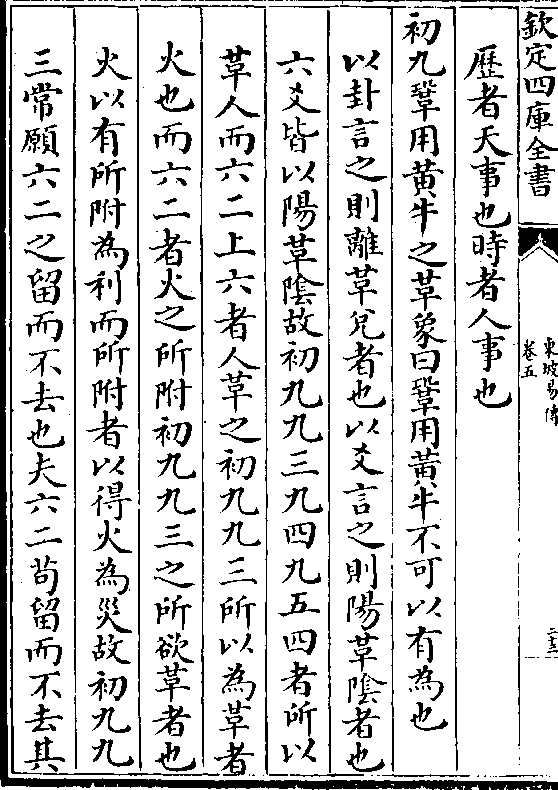 欽定四庫全書
東坡易傳
卷五
二十三
歴者天事也時者人事也
初九鞏用黄牛之革象曰鞏用黄牛不可以有為也
以卦言之則離革兑者也以爻言之則陽革陰者也
六爻皆以陽革陰故初九九三九四九五四者所以
革人而六二上六者人革之初九九三所以為革者
火也而六二者火之所附初九九三之所欲革者也
火以有所附為利而所附者以得火為災故初九九
三常願六二之留而不去也夫六二茍留而不去其